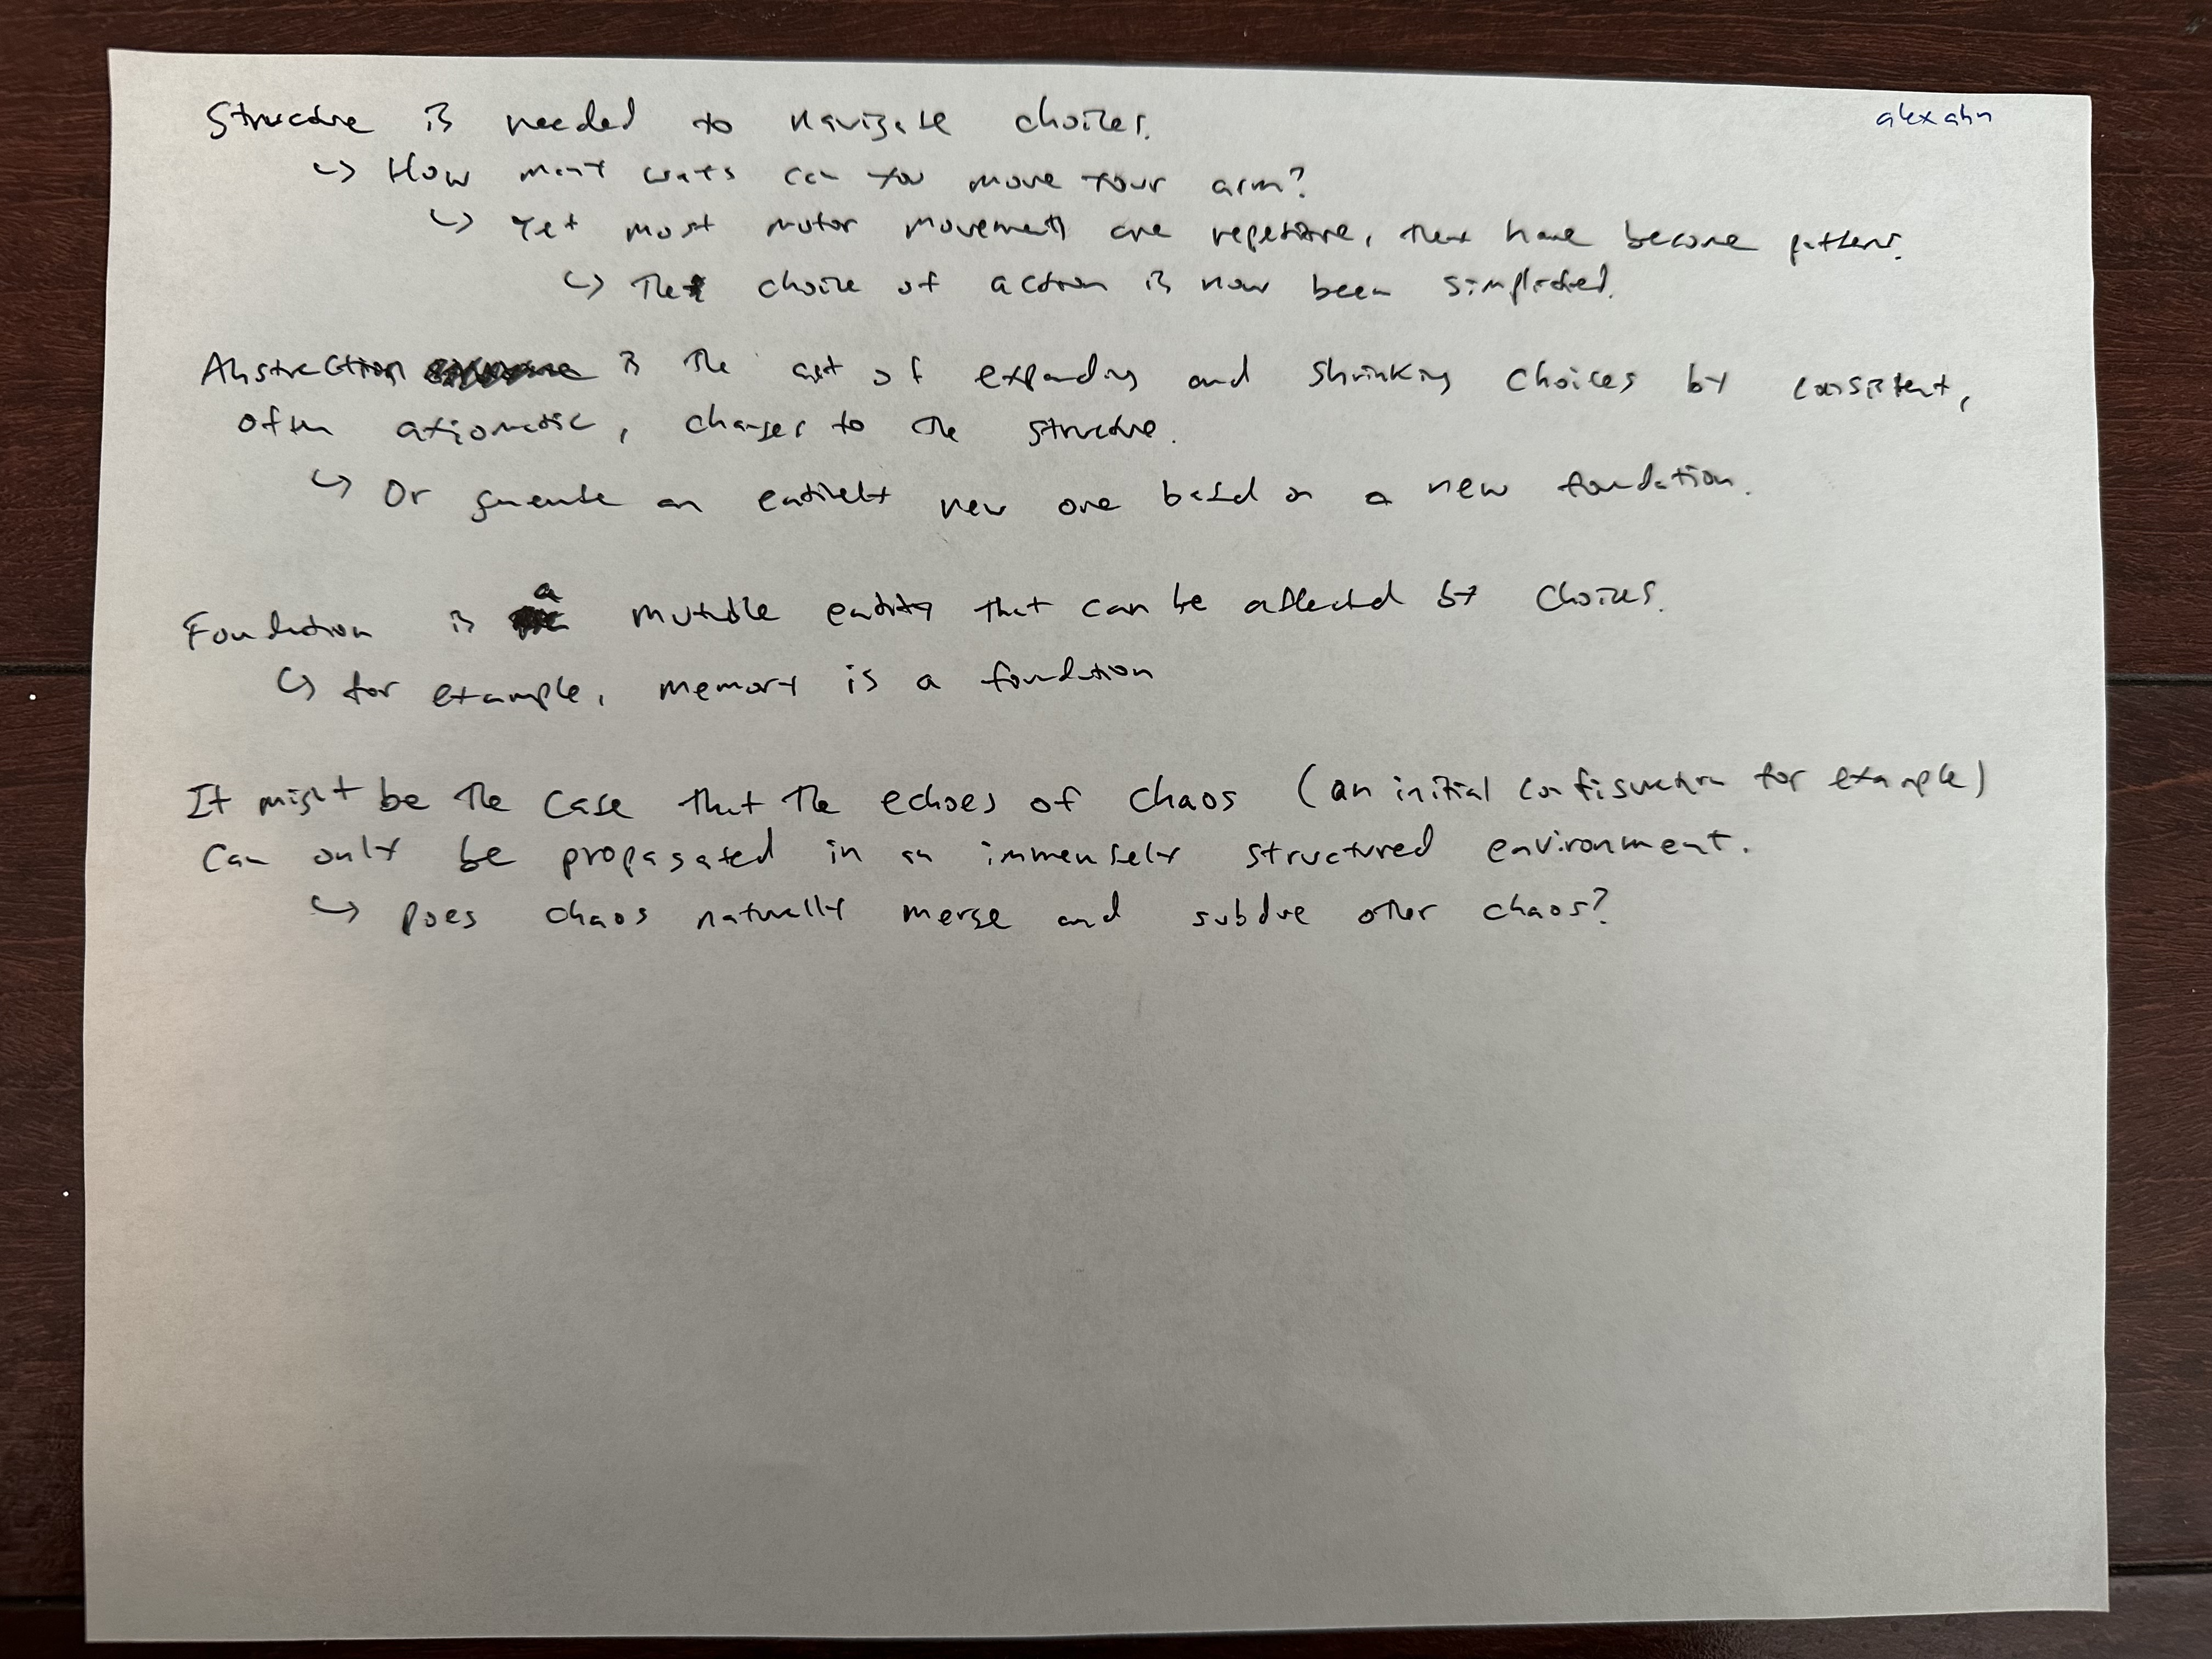 alexahn
Structure is needed to navigate choices.
↳ How many ways can you move your arm?
↳ Yet most motor movements are repetitive, they have become patterns.
↳ The choice of action is now been simplified.
Abstraction is the act of expanding and shrinking choices by consistent,
often axiomatic, changes to the structure.
↳ Or generate an entirely new one based on a new foundation.
Foundation is a mutable entity that can be affected by choices.
↳ for example, memory is a foundation
It might be the case that the echoes of chaos (an initial configuration for example)
can only be propagated in an immensely structured environment.
↳ Does chaos naturally merge and subdue other chaos?